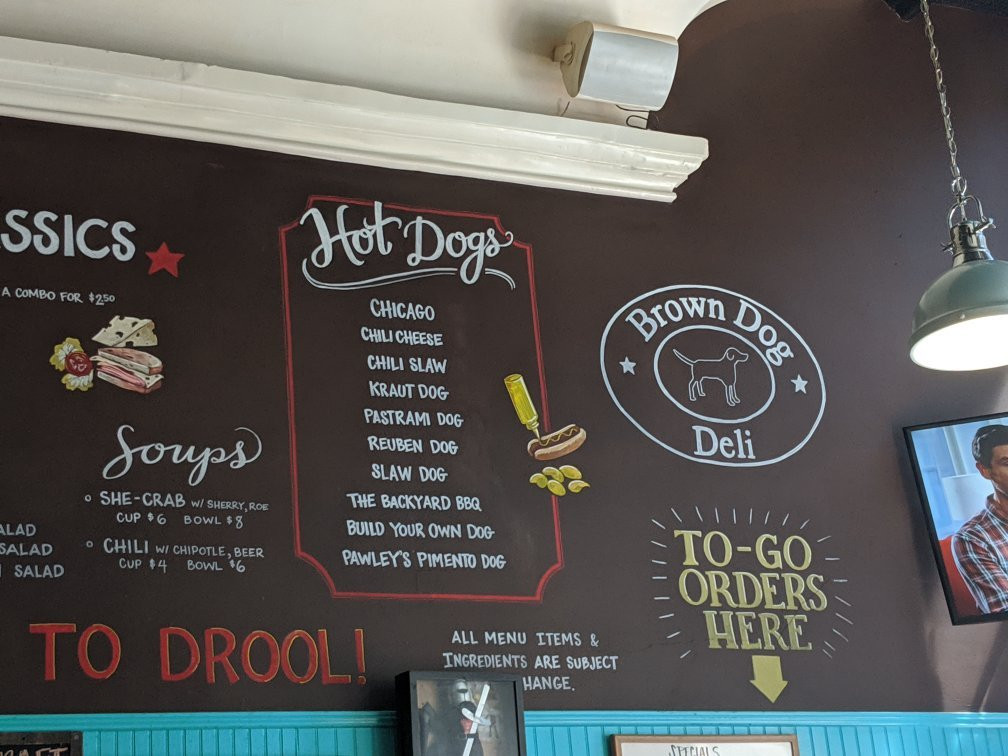 SSICS
A COMBO FOR $2.50
Soups
SHE-CRAB W/ SHERRY, ROE
CUP $6 BOWL $8
CHILI W/ CHIPOTLE, BEER
CUP $4 BOWL $6
ALAD
SALAD
SALAD
TO DROOL!
Hot Dogs
CHICAGO
CHILI CHEESE
CHILI SLAW
KRAUT DOG
PASTRAMI DOG
REUBEN DOG
SLAW DOG
THE BACKYARD BBQ
BUILD YOUR OWN DOG
PAWLEY'S PIMENTO DOG
ALL MENU ITEMS &
INGREDIENTS ARE SUBJECT
HANGE.
Brown Dog
Deli
TO-GO
ORDERS
HERE
SPECIALS